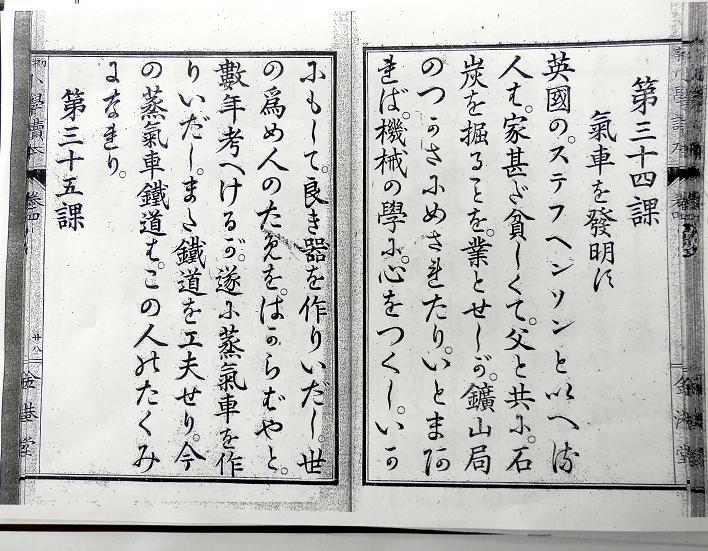 第三十四課
氣車を發明す
英國の。ステフヘンソンといへる
人は。家甚だ貧しくて。父と共に。石
炭を掘ることを。業とせしが。鑛山局
のつかさにめされたり。いとまあ
れば。機械の學に。心をつくし。いか
にもして。良き器を作りいだし。世
の爲め人のためを。はからむやと。
數年考へけるが。遂に蒸氣車を作
りいだし。また鐵道を工夫せり。今
の蒸氣車鐵道は。この人のたくみ
になれり。
第三十五課
小學讀本 卷四 廿八 金港堂